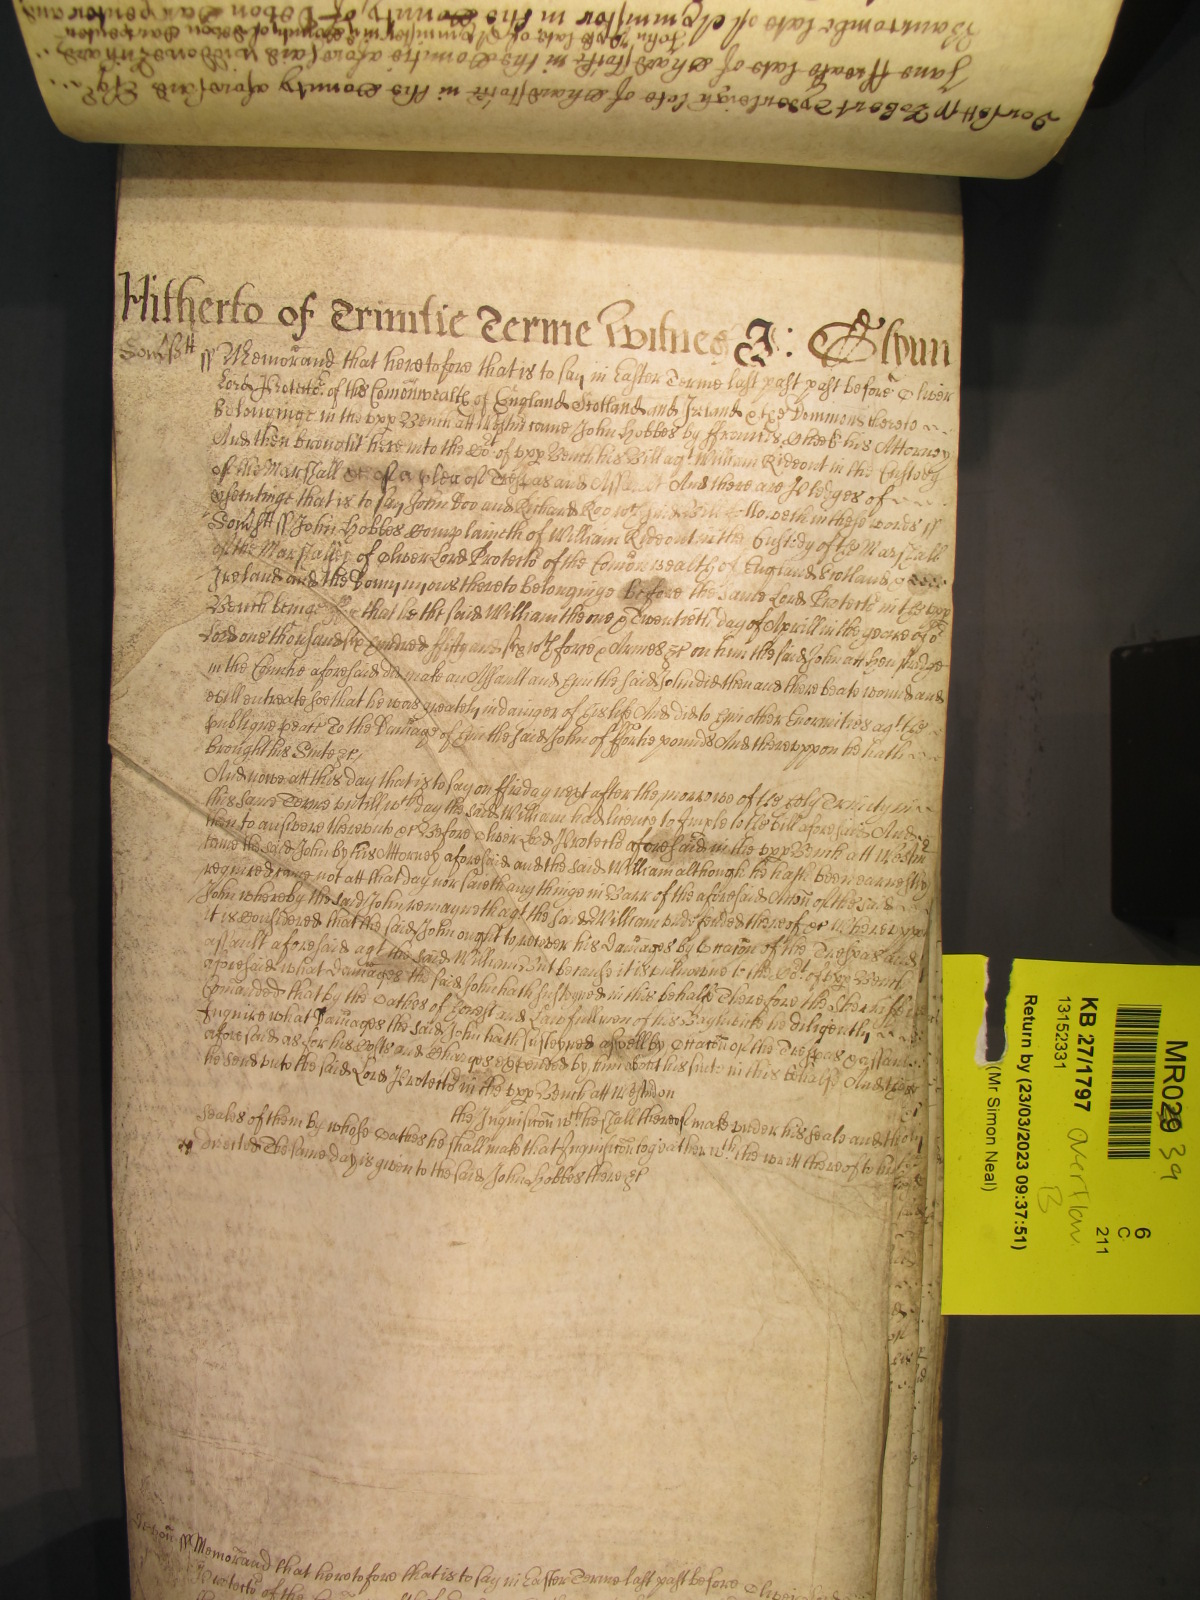 Hitherto of Trinitie Terme Witnes J: Glynn
Somst ss Memorand that heretofore that is to say in Easter Terme last past past before Oliver
Lord Protector of the Comonwealth of England Scotland and Ireland & the Dominions thereto
Belonginge in the upp Bench att Westm came John Hobbes by ffrancis his Attorney
And then brought here into the Cot of upp Bench his Bill agt William Rideout in the Custody
of the Marshall &c of a plea of Trespas and Assault And there are Pledges of
prosecutinge that is to say John Doo and Richard Roo wch said Bill followeth in these words ss
Somst ss John Hobbes Complaineth of William Rideout in the Custody of the Marshall
of the Marshallsey of Oliver Lord Protector of the Comonwealth of England Scotland &
Ireland and the Dominions thereto belonginge before the same Lord Protector in the upp
Bench beinge for that he the said William the one & Twentieth day of Aprill in the yeare of or
Lord one thousand six hundred fifty and six wth force & Armes &c on him the said John att Henstridge
in the Countie aforesaid did make an Assault and him the said John did then and there beate wound and
evill entreate soe that he was greately in danger of his life And did to him other Enormities agt the
publique peace To the Damage of him the said John of ffortie pounds And thereuppon he hath
brought his Suite &c
And nowe att this day that is to say on ffriday next after the morrowe of the holy Trinity in
this same Terme untill wch day the said William had licence to Imple to the bill aforesaid And
then to answere thereunto &c Before Oliver Lord Protector aforesaid in the upp Bench att Westm
came the said John by his Attorney aforesaid and the said William although he hath been earnestly
required came not att that day nor saieth any thinge in Barr of the aforesaid Accon of the said
John whereby the said John remayneth agt the said William undefended thereof &c Whereuppon
it is Considered that the said John ought to recover his damages by occacon of the Trespas and
assault aforesaid agt the said William But because it is unknowne to the Cot of upp Bench
aforesaid what damages the said John hath susteyned in this behalfe Therefore the Sherriffe is
Comanded that by the oathes of honest and Lawfull men of his Baylwicke he diligently
Inquire what Damages the said John hath susteyned aswell by occacon of the Trespas & assault
aforesaid as for his Costs and Charges expended by him about his suite in this behalfe And that
he send unto the said Lord Protector in the upp Bench att Westm on
the Inquisicon wch he shall thereof make under his seale and the
seales of them by whose oathes he shall make that Inquisicon togeather wth the writt thereof to him
directed The same day is given to the said John Hobbes there &c
ss Memorand that heretofore that is to say in Easter Terme last past before Oliver Lord
Protector of the
MR029 39
KB 27/1797
13152331
overflow
B
6
C
211
Return by (23/03/2023 09:37:51)
(Mr Simon Neal)